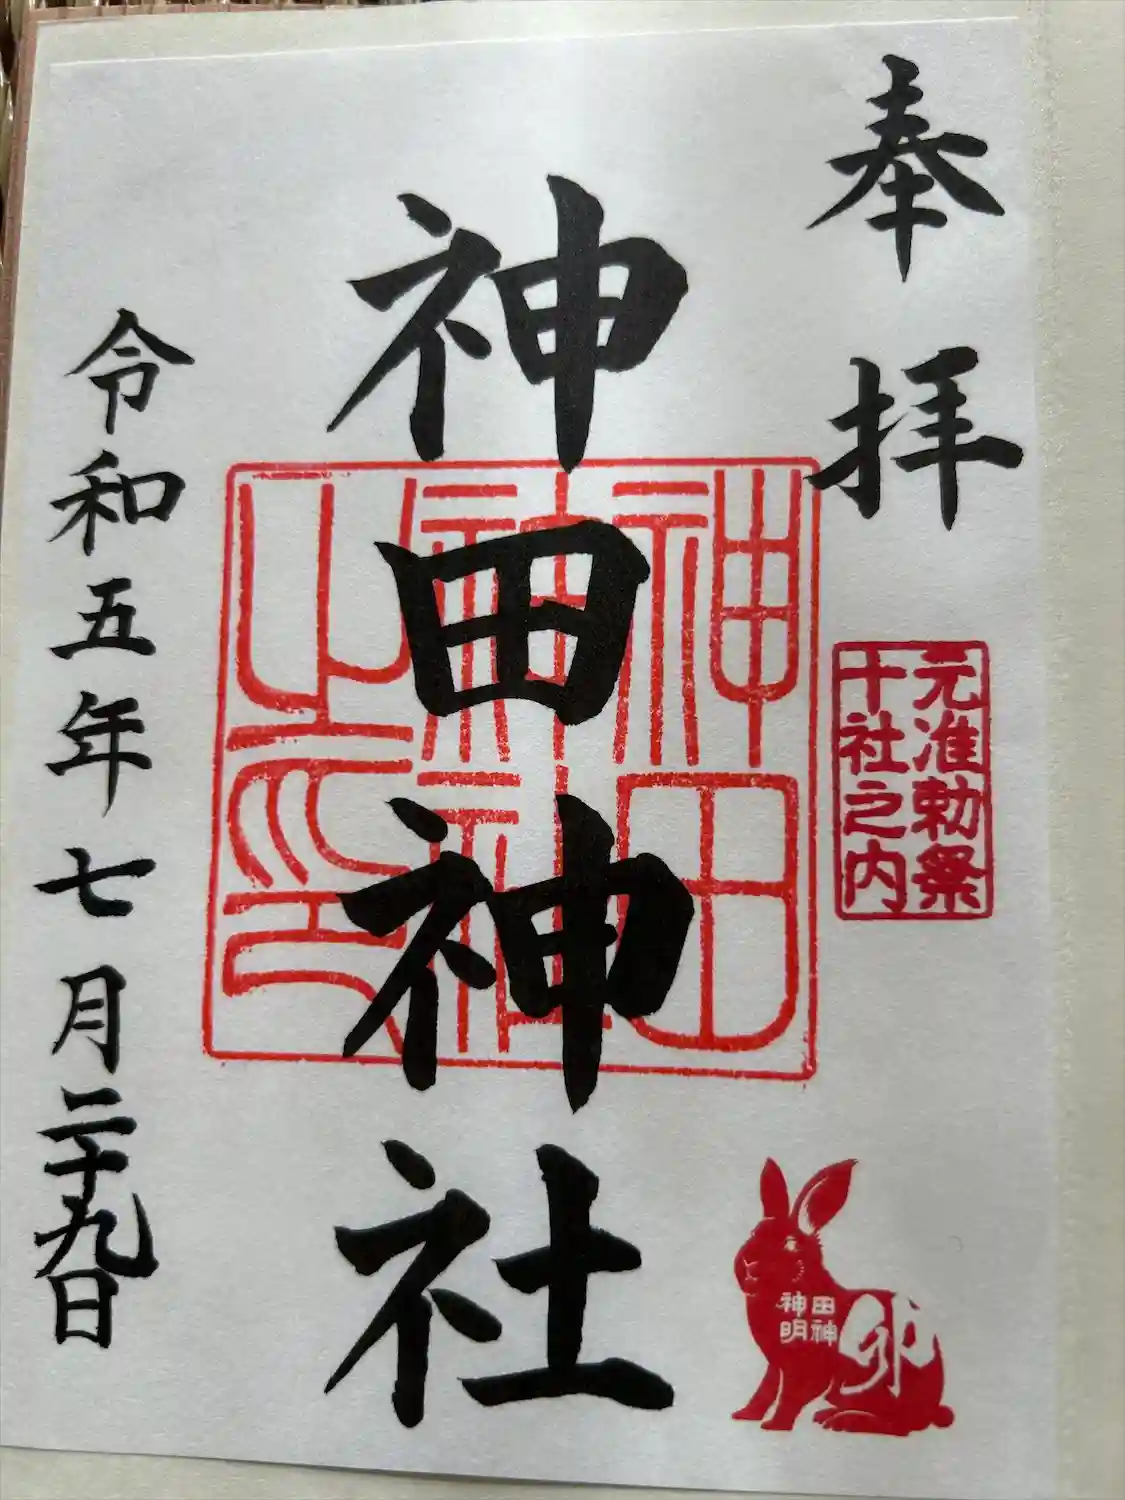 奉拝
元准勅祭
十社之内
神田神社
神田
神社
之印
田神
神明
卯
令和五年七月二十九日